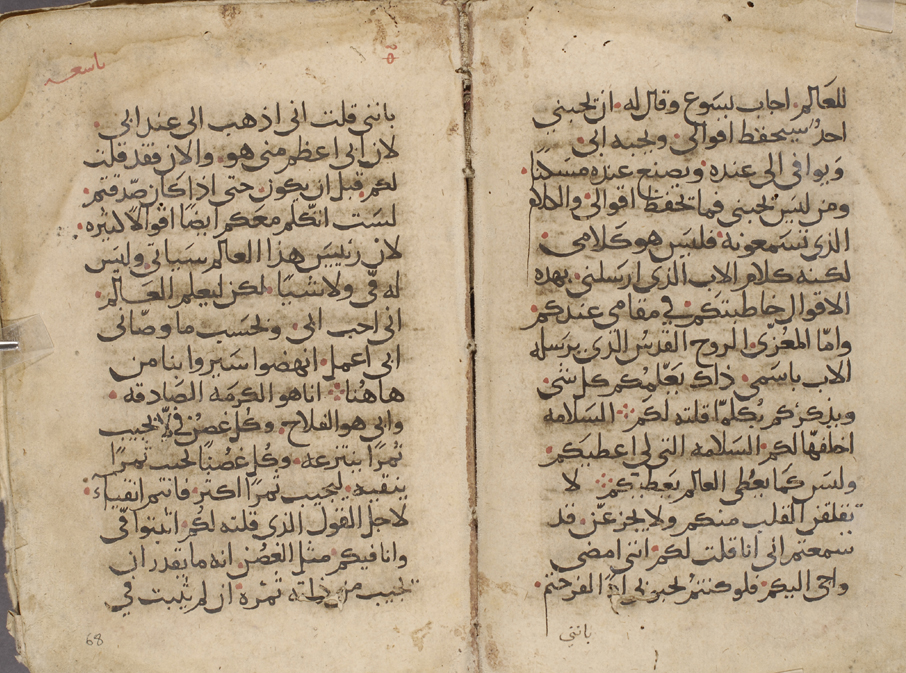 للعالم. اجاب يسوع وقال له. ان يحبني
احد سيحفظ اقوالي. ويحبه ابي.
ويوافي الى عنده. ويصنع عنده مسكنًا.
ومن ليس يحبني فما يحفظ اقوالي. والكلام
الذي تسمعونه. فليس هو كلامي.
لكنه كلام الاب الذي ارسلني. بهذه
الاقوال خاطبتكم. في مقامي عندكم.
وامّا المعُزّي الروح القدس الذي يرسله
الاب باسمي. ذلك يعَلّمُكم كل شي.
ويذكركم بكُلمّا قلته لكم. السلامه
اخلفها لكم. السَلامه التي لي اعطيكم.
وليس كما يعُطي العالم يعَطيكم. لا
تقلقن القلب منكم ولا يحزعنّ. قد
سمعتم اني انا قلت لكم. انني امضي
واجي اليكم. فلو كنتم تحبوني اذًا لفرحتم.
بانني
باسعه
بانني قلت اني اذهب الى عند ابي.
لان ابي اعظم مني هو. والان فقد قلت
لكم. قبل ان يكون. حتى اذا كان صّدقتم.
لسَت اتكلم معكم ايضًا اقوالًا كثيره.
لان رييسَ هذا العالم سَياتي. وليس
له فيّ ولا شيًا. لكن ليعلم العَالم.
اني احب ابي. وبحسَب ما وصّاني
ابي اعمل. انهضوا سَيروا بنا من
هاهُنا. انا هو الكرمَه الصَادقه.
وابي هو الفلاح. وكُل غصُن فيّ لا يجيب
ثمرًا ينتزعه. وكُل غصُنًا يجيب ثمرًا
ينقيه. ليجيب ثمرًا اكثر. فانتم انقياءً.
لاجل القول الذي قلته لكُم. اثبتوا فيّ
وانا فيكم. مثل الغصُن. انه ما يقدر ان
يجيب من ذاته ثمره. ان لم يثبت في
68